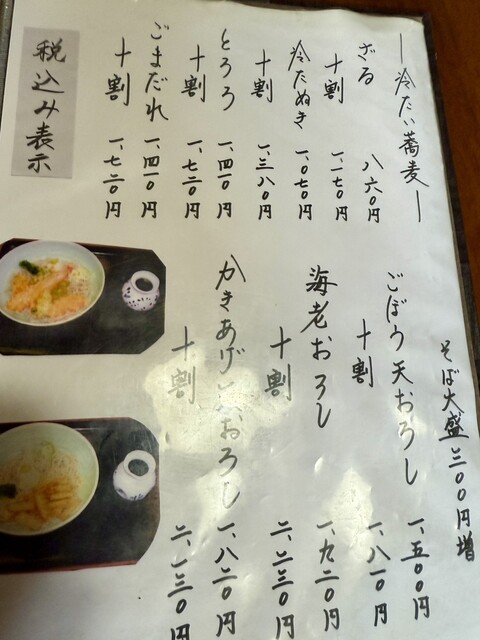 ―冷たい蕎麦―
ざる 八六〇円
十割 一、一七〇円
冷たぬき 一、〇七〇円
十割 一、三八〇円
とろろ 一、四一〇円
十割 一、七二〇円
ごまだれ 一、四一〇円
十割 一、七二〇円
税込み表示
そば大盛三〇〇円増
ごぼう天おろし 一、五〇〇円
十割 一、八一〇円
海老おろし 一、九二〇円
十割 二、二三〇円
かきあげ天おろし 一、八二〇円
十割 二、一三〇円